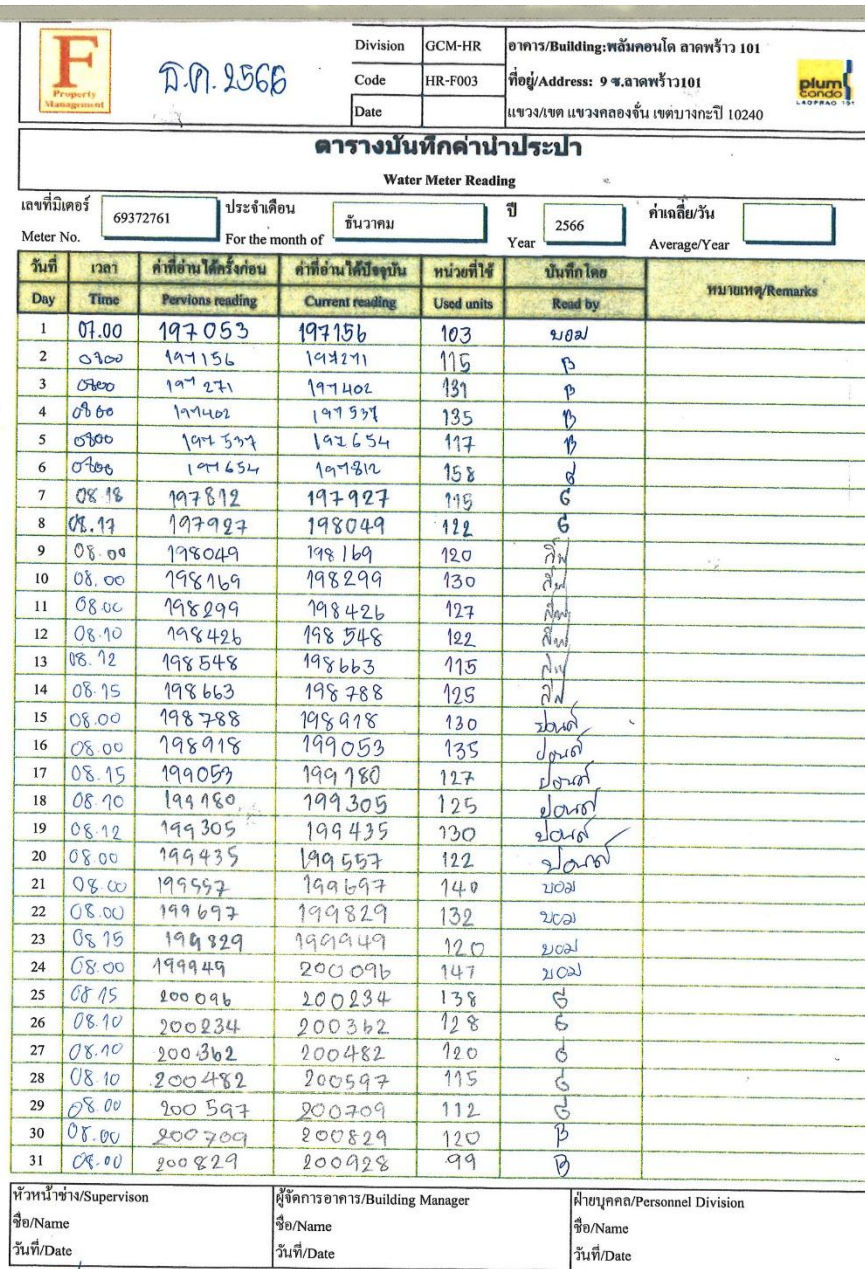 F
Property
Management
ธ.ค. 2566
Division GCM-HR อาคาร/Building:พลัมคอนโด ลาดพร้าว 101
Code HR-F003 ที่อยู่/Address: 9 ซ.ลาดพร้าว101
Date แขวง/เขต แขวงคลองจั่น เขตบางกะปิ 10240
plum
condo
LADPRAO 101
ตารางบันทึกค่าน้ำประปา
Water Meter Reading
เลขที่มิเตอร์ 69372761 ประจำเดือน ธันวาคม ปี 2566 ค่าเฉลี่ย/วัน
Meter No. For the month of Year Average/Year
วันที่ เวลา ค่าที่อ่านได้ครั้งก่อน ค่าที่อ่านได้ปัจจุบัน หน่วยที่ใช้ บันทึกโดย หมายเหตุ/Remarks
Day Time Pervions reading Current reading Used units Read by
1 07.00 197053 197156 103 บอม
2 0700 197156 197271 115 B
3 197271 197402 131 B
4 197402 197537 135 B
5 0700 197537 197654 117 B
6 197654 197812 158
7 08.18 197812 197927 115
8 08.17 197927 198049 122
9 08.00 198049 198169 120
10 08.00 198169 198299 130
11 08.00 198299 198426 127
12 08.10 198426 198548 122
13 08.12 198548 198663 115
14 08.15 198663 198788 125
15 08.00 198788 198918 130 ปอนด์
16 08.00 198918 199053 135 ปอนด์
17 08.15 199053 199180 127 ปอนด์
18 08.10 199180 199305 125 ปอนด์
19 08.12 199305 199435 130 ปอนด์
20 08.00 199435 199557 122 ปอนด์
21 08.00 199557 199697 140 บอม
22 08.00 199697 199829 132 บอม
23 08 15 199829 199949 120 บอม
24 08.00 199949 200096 147 บอม
25 08 15 200096 200234 138
26 08.10 200234 200362 128
27 08.10 200362 200482 120
28 08.10 200482 200597 115
29 08.00 200597 200709 112
30 08.00 200709 200829 120 B
31 08.00 200829 200928 99 B
หัวหน้าช่าง/Supervison ผู้จัดการอาคาร/Building Manager ฝ่ายบุคคล/Personnel Division
ชื่อ/Name ชื่อ/Name ชื่อ/Name
วันที่/Date วันที่/Date วันที่/Date